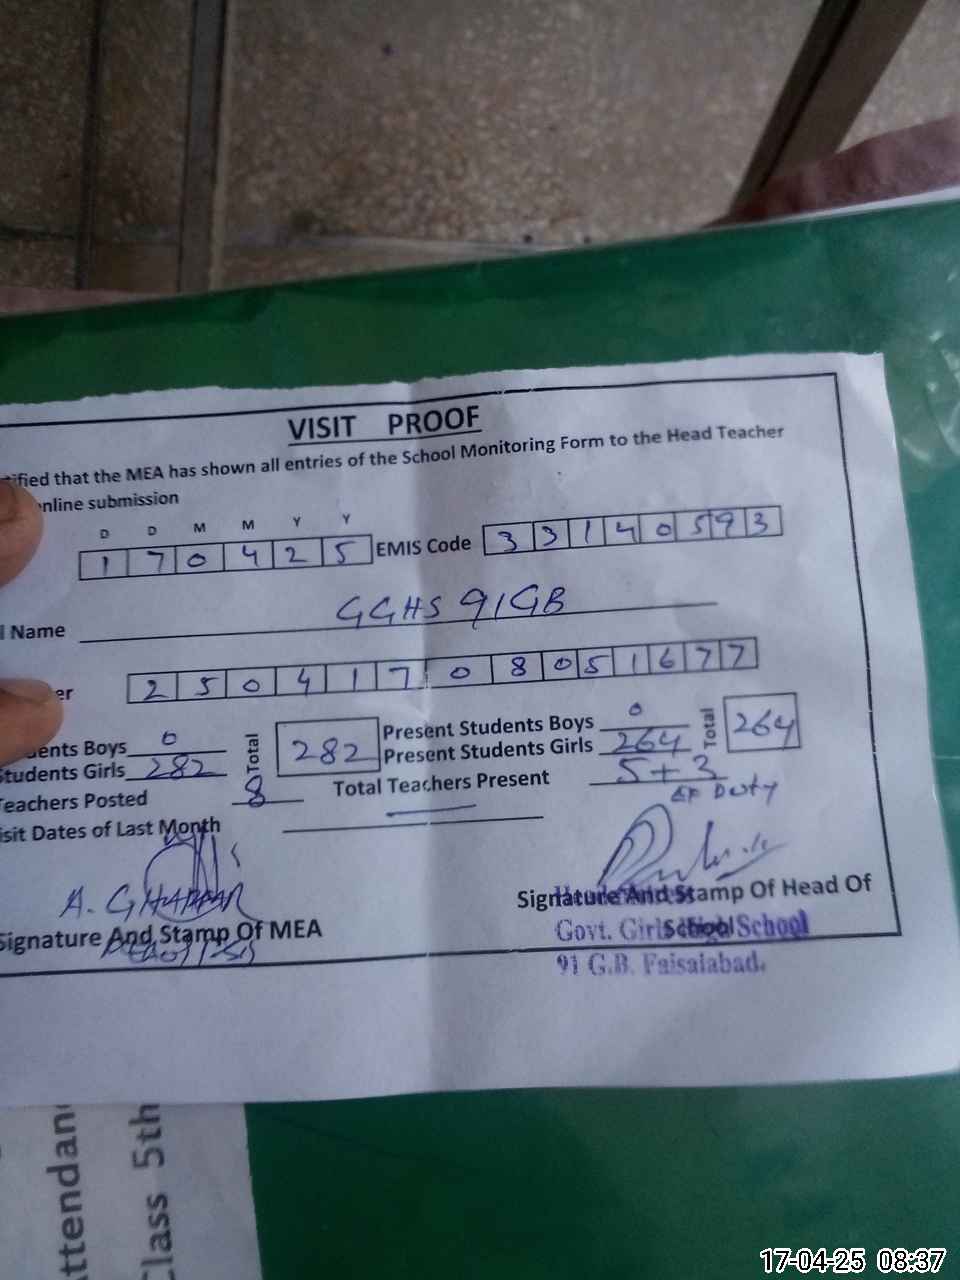 VISIT PROOF
tified that the MEA has shown all entries of the School Monitoring Form to the Head Teacher
online submission
D D M M Y Y
1 7 0 4 2 5 EMIS Code 3 3 1 4 0 5 9 3
l Name GGHS 91GB
er 2 5 0 4 1 7 0 8 0 5 1 6 7 7
dents Boys 0 Total 282 Present Students Boys 0 Total 264
Students Girls 282 Present Students Girls 264
Teachers Posted 8 Total Teachers Present 5+3
Duty
isit Dates of Last Month
A. GHAFFAR
Signature And Stamp Of MEA
Signature And Stamp Of Head Of
School
Govt. Girls High School
91 G.B. Faisalabad.
ttendan
Class 5th
17-04-25 08:37